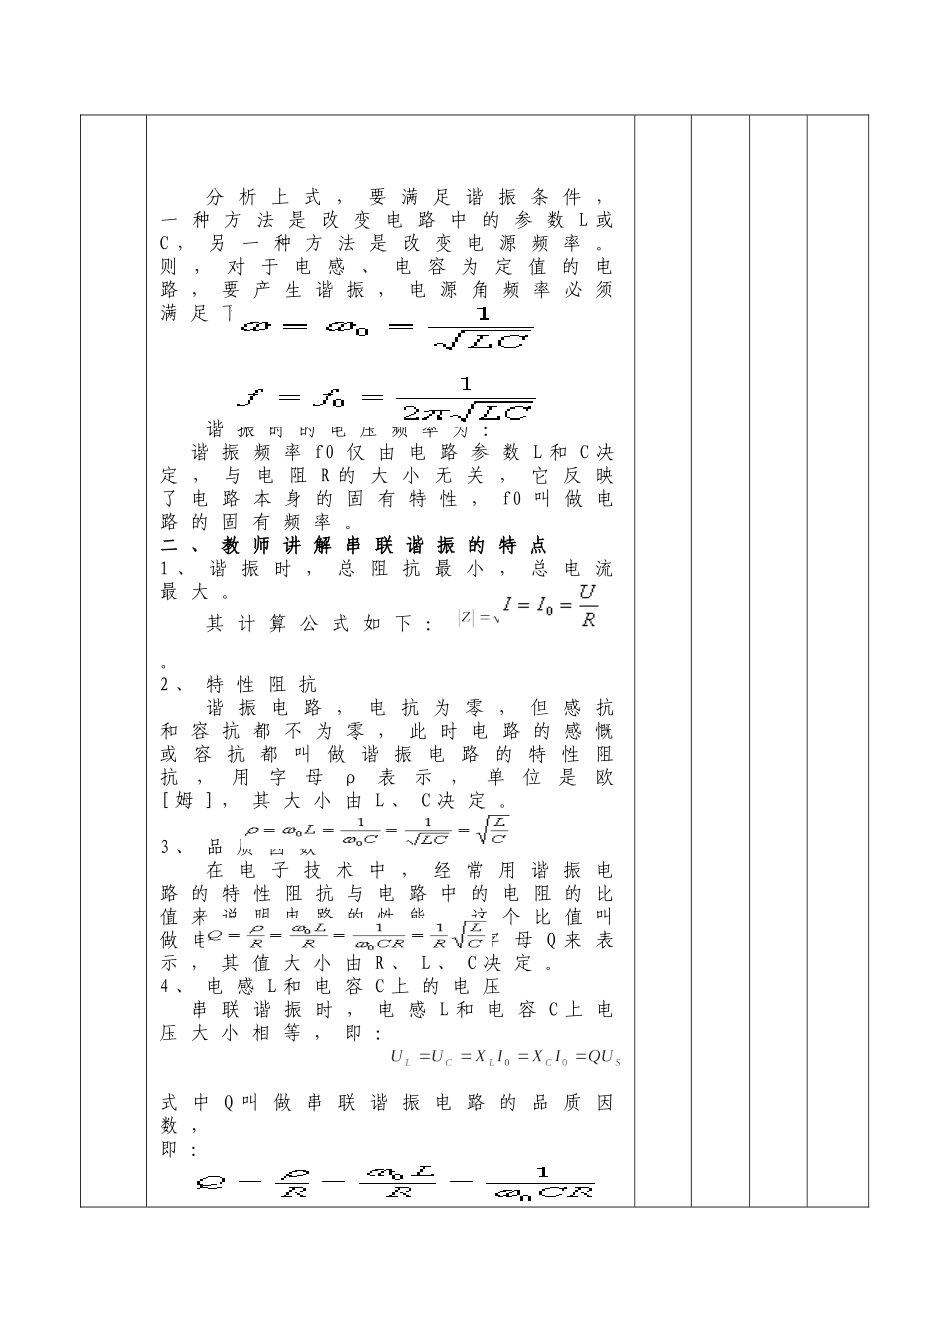 分析上式，要满足谐振条件，
一种方法是改变电路中的参数L或
C，另一种方法是改变电源频率。
则，对于电感、电容为定值的电
路，要产生谐振，电源角频率必须
满足下
ω = ω₀ = 1/√(LC)
f = f₀ = 1/(2π√(LC))
谐振时的电压频率为：
谐振频率f0仅由电路参数L和C决
定，与电阻R的大小无关，它反映
了电路本身的固有特性，f0叫做电
路的固有频率。
二、教师讲解串联谐振的特点
1、谐振时，总阻抗最小，总电流
最大。
其计算公式如下： |Z| =√ I = I₀ = U/R
。
2、特性阻抗
谐振电路，电抗为零，但感抗
和容抗都不为零，此时电路的感慨
或容抗都叫做谐振电路的特性阻
抗，用字母ρ表示，单位是欧
[姆]，其大小由L、C决定。
ρ = ω₀L = 1/(ω₀C) = 1/√(LC) = √(L/C)
3、品质因数
在电子技术中，经常用谐振电
路的特性阻抗与电路中的电阻的比
值来说明电路的性能，这个比值叫
做电 Q = ρ/R = ω₀L/R = 1/(ω₀CR) = 1/R √(L/C) 字母Q来表
示，其值大小由R、L、C决定。
4、电感L和电容C上的电压
串联谐振时，电感L和电容C上电
压大小相等，即：
U_L =U_C =X_L I₀ =X_C I₀ =QU_S
式中Q叫做串联谐振电路的品质因
数，
即：
Q = ρ/R = ω₀L/R = 1/(ω₀CR)